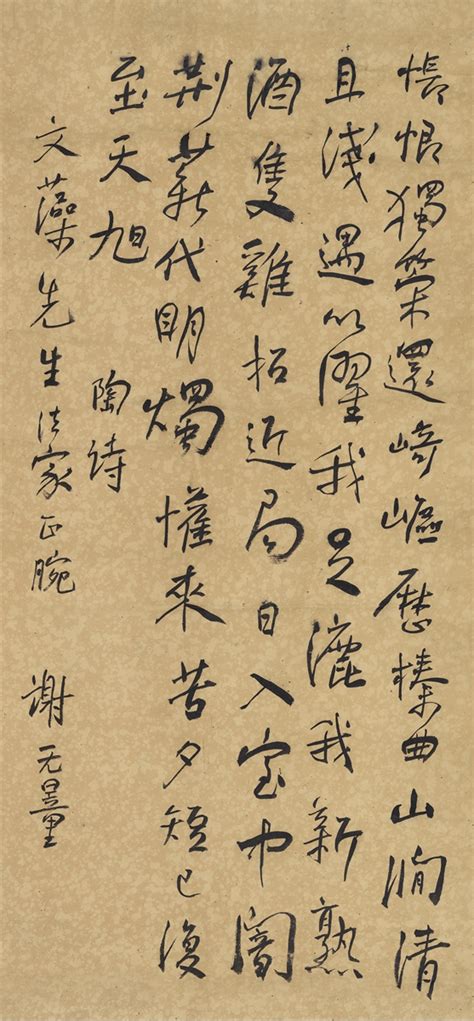 悵恨獨策還崎嶇歷榛曲山澗清
且淺遇以濯我足漉我新熟
酒隻雞招近局日入室中闇
荊薪代明燭懽來苦夕短已復
至天旭
陶詩
文藻先生法家正腕
謝无量